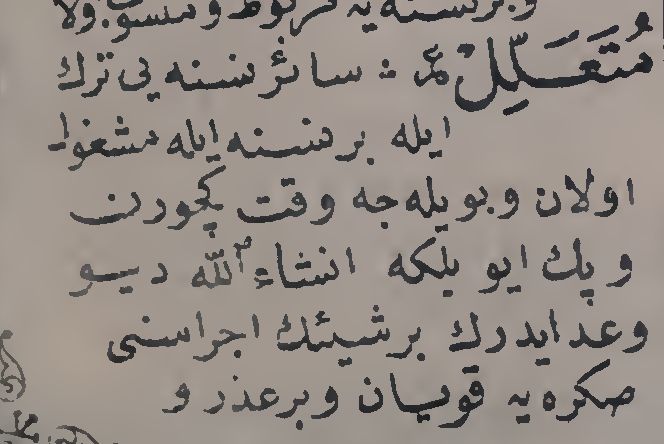 و برنسنه‌یه مربوط و منسوب. ولا
مُتَعَلِّلٌ ع : سائر نسنه یی ترك
ایله برنسنه ایله مشغول
اولان و بویله‌جه وقت کچورن
و پك ایو بلکه انشاء الله دیو
وعد ایدرك برشیئك اجراسنی
صکره‌یه قویان و برعذر و